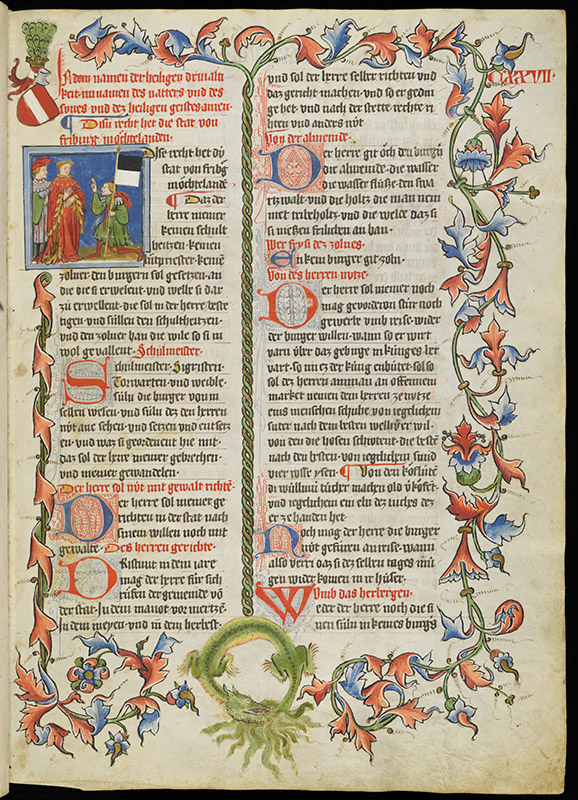 In dem namen der heiligen drivalti
keit in namen des vatters vnd des
sones vnd dez heiligen geistes amen·
¶ Disu recht het die stat von
friburg in öchtelanden·
Dise recht het dv̍
stat von fribg
in öchtlande
¶ Daz der
herre niemer
keinen schult
heizen keinen
lútpriester keinē
zolner den burgern sol gesetzen an
die die si erwelent vnd welle si dar
zů erwellent die sol in der herre beste
tigen vnd súllen den schultheitzen
vnd den zolner han die wile so si in
wol gevallent· Schůlmeister·
Schůlmeister· Sigristen·
Torwarten vnd weible·
súln die burger von in
selben wesen· vnd súln dez den herren
nv̍t ane sehen vnd setzen vnd entsetz
en vnd waz si geordenent hie mit·
daz sol der herre niemer gebrechen
vnd niemer gewandelen·
Der herre sol nv̍t mit gewalt richtē·
Der herre sol niemer ge
richten in der stat nach
sinem willen noch mit
gewalte· Des herren gerichte·
Dristunt in dem jare
mag der herre fúr sich
růfen der gemeinde vō
der stat· In dem manot vor mertzē·
In dem meyen vnd in dem herbest·
CXXXVII·
vnd sol der herre selber richten vnd
daz gericht machen vnd so er gedin
ge het· vnd nach der stette rechte ri
hten vnd anders nv̍t
Von der almeinde·
Der herre git öch den burgern
die almeinde· die wasser
die wasser flúße· den swa
rtzwalt vnd die holtz die man nem
met triboltz· vnd die welde daz si
si nießen frilichen an ban·
Wer fry si dez zolnes·
Enkein burger git zoln·
Von des herren nvtze·
Der herre sol niemer noch
mag gevorderon stúr noch
gewerbe vmb reise wider
der burger willen· wann so er wirt
varn über daz gebirge in kúniges her
vart· so im ez der kúng enbútet sol so
sol dez herren amman an offennem
market nemen den herren ze nvtze
eins menschen schůhe· von iegelichem
suter nach dem besten
von den die hosen schrotent die beste
nach den besten· von iegelichem smid
vier rosse ysen· ¶ Von den köflúte
di wúllinú tůcher machen old v̍köffēt
vnd iegelichem ein eln dez tůchs dez
er ze handen het·
Noch mag der herre die burger
nv̍t gefúren an reise· wann
also verr daz si dez selben tages mv̍
gen wider komen in ir húser·
Vmb das herbergen·
Weder der herre noch die si
nen súln in keines burgs